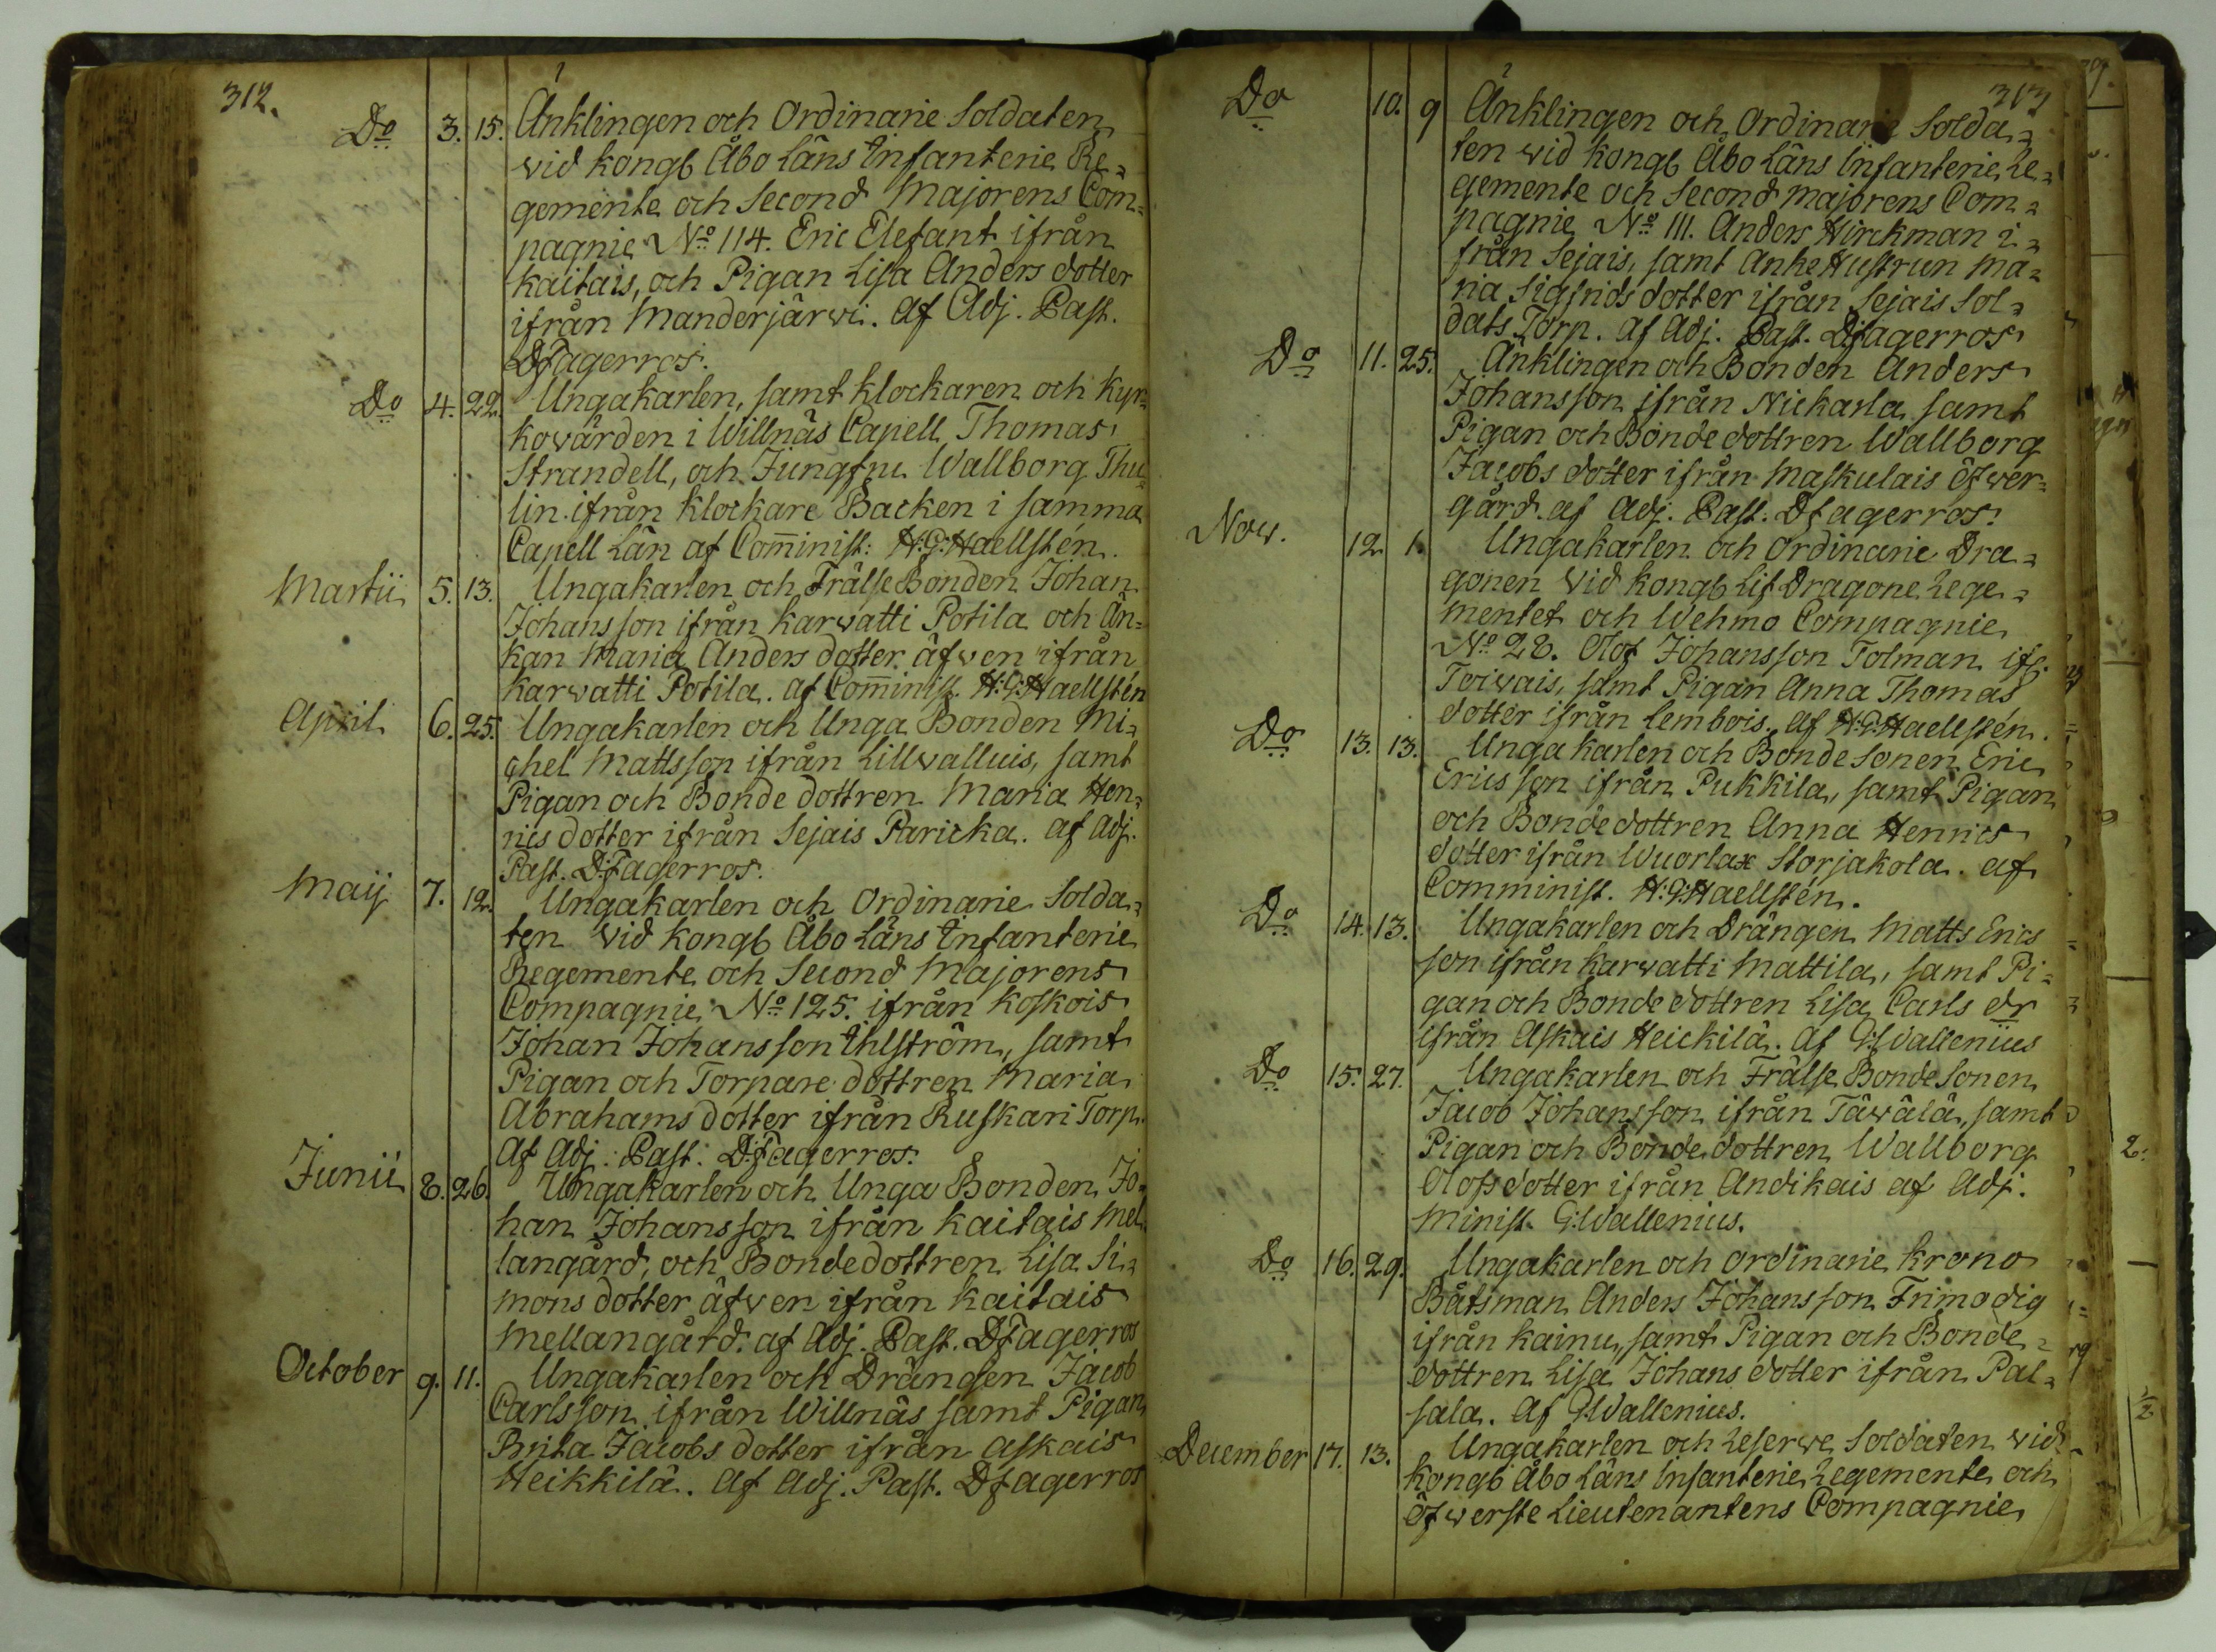 312.
Do 3. 15. Änklingen och Ordinarie Soldaten
vid kongl Åbo Läns Infanterie Re=
gemente och Second Majorens Com=
pagnie No 114. Eric Elefant ifrån
kaitais, och Pigan Lisa Anders dotter
ifrån Manderjärwi. Af Adj. Past.
D Fagerros.
Do 4. 22. Ungakarlen, samt klockaren och Kyr=
kowärden i Willnäs Capell Thomas
Strandell, och Jungfru Wallborg Thu=
lin ifrån klockare Backen i samma
Capell Län af Com̄inist: H:G:Haellstén.
Martii 5. 13. Ungakarlen och Frälse Bonden Johan
Johansson ifrån karvatti Potila och Än=
kan Maria Anders dotter äfven ifrån
karvatti Potila. af Com̄inist. H:G:Haellstén
April 6. 25. Ungakarlen och Unga Bonden Mi=
chel Mattsson ifrån Lillvalluis, samt
Pigan och Bonde dottren Maria Hen=
rics dotter ifrån Sejais Paricka. af Adj.
Past. D:Fagerros.
Maij 7. 12. Ungakarlen och Ordinarie Solda=
ten vid kongl Åbo Läns Infanterie
Regemente och Second Majorens
Compagnie No 125. ifrån koskois
Johan Johansson Ihlström, samt
Pigan och Torpare dottren Maria
Abrahams dotter ifrån Ruskari Torp.
Af Adj. Past. D:Fagerros.
Junii 8. 26. Ungakarlen och Unga Bonden Jo=
han Johansson ifrån kaitais Mel=
langård, och Bondedottren Lisa Si=
mons dotter äfven ifrån kaitais
Mellangård. af Adj. Past. D Fagerros
October 9. 11. Ungakarlen och Drängen Jacob
Carlsson ifrån Willnäs samt Pigan
Brita Jacobs dotter ifrån Askais
Heikkilä. Af Adj. Past. D Fagerros
313
Do 10. 9 Änklingen och Ordinarie Solda=
ten wid kongl Åbo Läns Infanterie Re=
gemente och Second majorens Com=
pagnie No 111. Anders Hirckman i=
från Sejais, samt Anke Hustrun Ma=
ria Sigfrids dotter ifrån Sejais Sol=
dats Torp. af Adj. Past. D Fagerros
Do 11. 25. Änklingen och Bonden Anders
Johansson ifrån Nickarla samt
Pigan och Bonde dottren Wallborg
Jacobs dotter ifrån Maskulais Öfwer=
gård. af Adj. Past. D Fagerros.
Nov. 12. 1. Ungakarlen och Ordinarie Dra=
gonen vid kongl Lif Dragone Rege=
mentet och Wehmo Compagnie
No 28. Olof Johansson Tolman ifr.
Toivais, samt Pigan Anna Thomas
dotter ifrån Lembois. af H:G:Haellstén.
Do 13. 13. Ungakarlen och Bonde sonen Eric
Ericsson ifrån Pukkila, samt Pigan
och Bonde dottren Anna Henrics
dotter ifrån Wuorlax Storjakola. af
Comminist. H:G:Haellstén.
Do 14. 13. Ungakarlen och Drängen Matts Erics
son ifrån karvatti Mattila, samt Pi=
gan och Bonde dottren Lisa Carls dr
ifrån Askais Heickilä. Af G:Wallenius
Do 15. 27. Ungakarlen och Frälse Bonde Sonen
Jacob Johansson ifrån Täwälä, samt
Pigan och Bonde dottren Wallborg
Olofsdotter ifrån Andikais af Adj.
Minist. G:Wallenius.
Do 16. 29. Ungakarlen och Ordinarie krono
Båtsman Anders Johansson Frimodig
ifrån kainu, samt Pigan och Bonde=
dottren Lisa Johans dotter ifrån Pal=
sala. Af G:Wallenius.
December 17. 13. Ungakarlen och Reserve Soldaten vid
kongl Åbo Läns Infanterie Regemente och
Öfverste Lieutenantens Compagnie